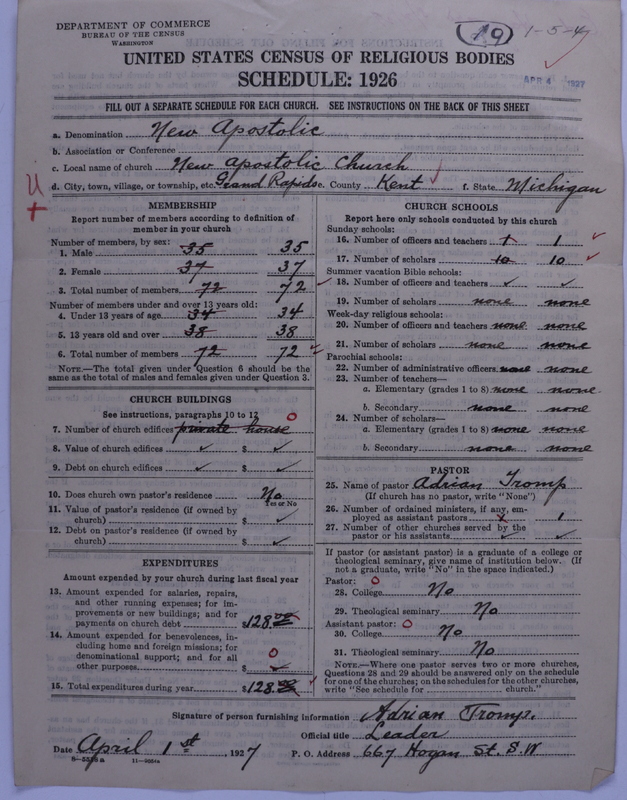 DEPARTMENT OF COMMERCE
BUREAU OF THE CENSUS
WASHINGTON
19 1-5-47
UNITED STATES CENSUS OF RELIGIOUS BODIES
SCHEDULE: 1926
APR 4 1927
FILL OUT A SEPARATE SCHEDULE FOR EACH CHURCH. SEE INSTRUCTIONS ON THE BACK OF THIS SHEET
a. Denomination New Apostolic
b. Association or Conference
c. Local name of church New Apostolic Church
d. City, town, village, or township, etc. Grand Rapids e. County Kent f. State Michigan
MEMBERSHIP
Report number of members according to definition of
member in your church
Number of members, by sex:
1. Male 35 35
2. Female 37 37
3. Total number of members 72 72
Number of members under and over 13 years old:
4. Under 13 years of age 34 34
5. 13 years old and over 38 38
6. Total number of members 72 72
NOTE.—The total given under Question 6 should be the
same as the total of males and females given under Question 3.
CHURCH BUILDINGS
See instructions, paragraphs 10 to 12
7. Number of church edifices private house 0
8. Value of church edifices $
9. Debt on church edifices $
10. Does church own pastor's residence No
Yes or No
11. Value of pastor's residence (if owned by
church) $
12. Debt on pastor's residence (if owned by
church) $
EXPENDITURES
Amount expended by your church during last fiscal year
13. Amount expended for salaries, repairs,
and other running expenses; for im-
provements or new buildings; and for
payments on church debt $128.00
14. Amount expended for benevolences, in-
cluding home and foreign missions; for
denominational support; and for all
other purposes $ 0
15. Total expenditures during year $128.00
CHURCH SCHOOLS
Report here only schools conducted by this church
Sunday schools:
16. Number of officers and teachers 1 1
17. Number of scholars 10 10
Summer vacation Bible schools:
18. Number of officers and teachers
19. Number of scholars none none
Week-day religious schools:
20. Number of officers and teachers none none
21. Number of scholars none none
Parochial schools:
22. Number of administrative officers none none
23. Number of teachers—
a. Elementary (grades 1 to 8) none none
b. Secondary none none
24. Number of scholars—
a. Elementary (grades 1 to 8) none none
b. Secondary none none
PASTOR
25. Name of pastor Adrian Tromp
(If church has no pastor, write "None")
26. Number of ordained ministers, if any, em-
ployed as assistant pastors 1
27. Number of other churches served by the
pastor or his assistants
If pastor (or assistant pastor) is a graduate of a college or
theological seminary, give name of institution below. (If
not a graduate, write "No" in the space indicated.)
Pastor: 0
28. College No
29. Theological seminary No
Assistant pastor: 0
30. College No
31. Theological seminary No
NOTE.—Where one pastor serves two or more churches,
Questions 28 and 29 should be answered only on the schedule
for one of the churches; on the schedules for the other churches,
write "See schedule for church."
Signature of person furnishing information Adrian Tromp.
Official title Leader
Date April 1st, 1927 P. O. Address 667 Hogan St. S.W